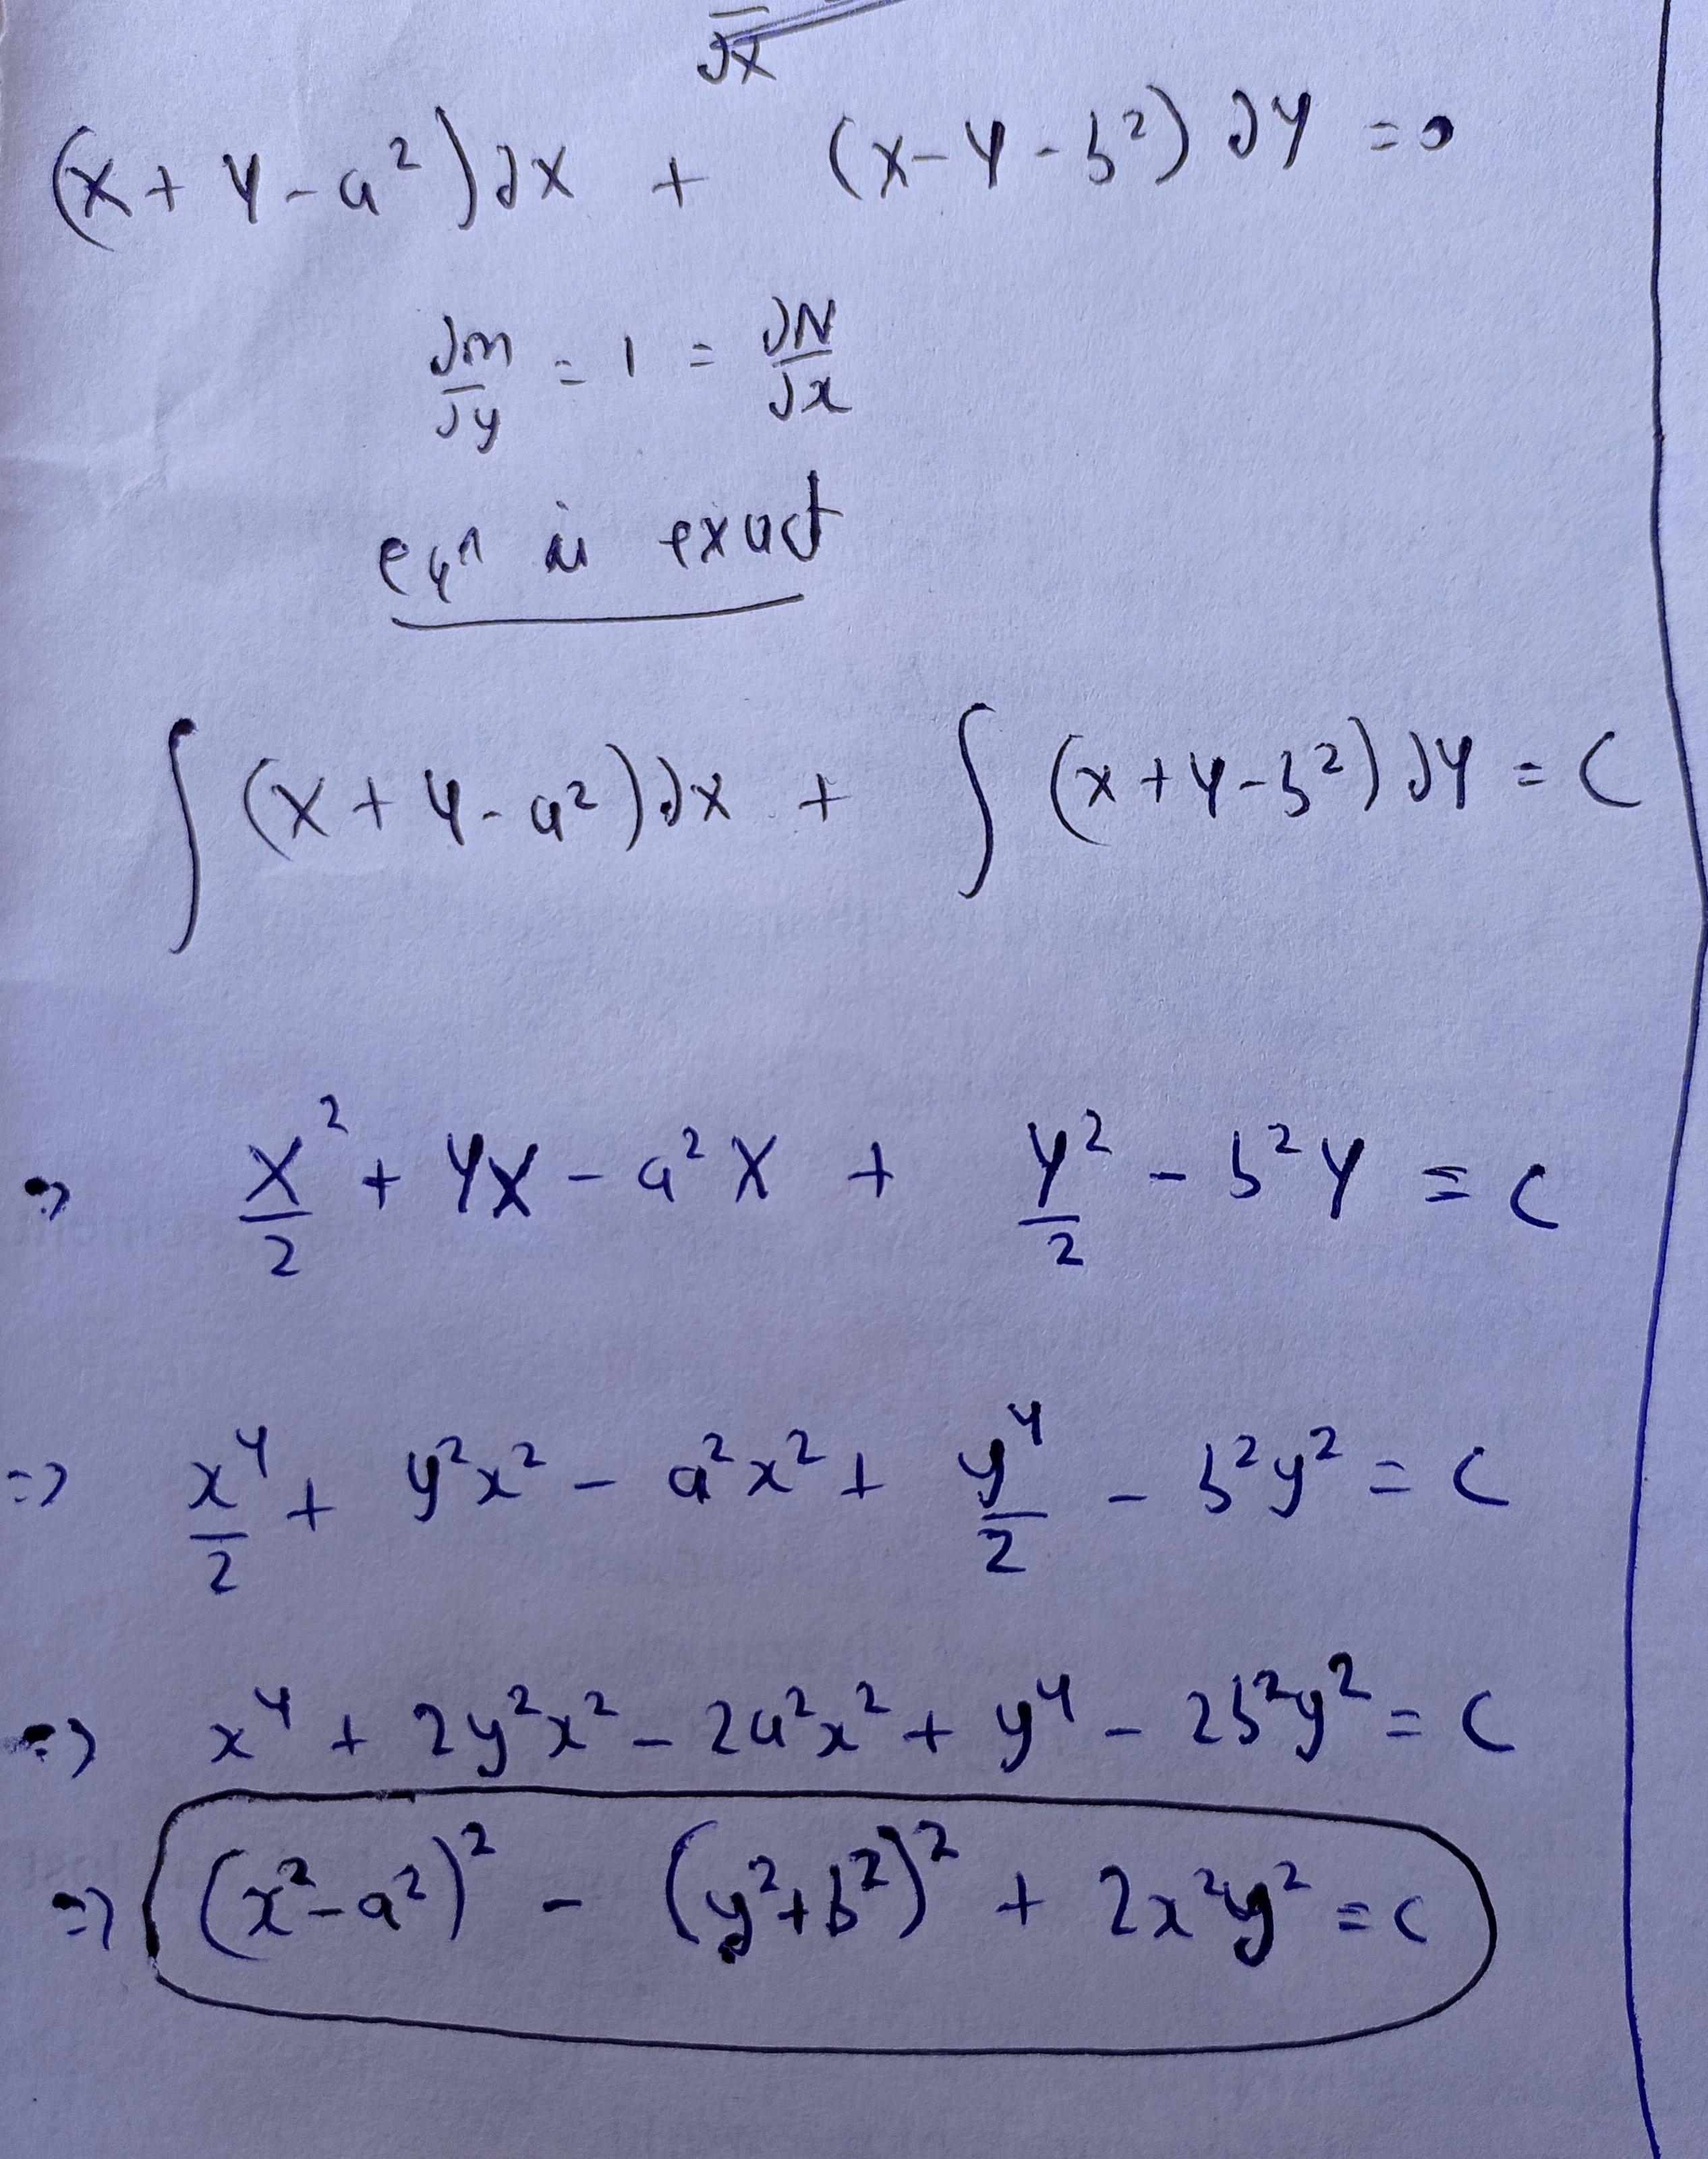 ∂X
(X + Y - a²)∂X + (X - Y - b²) ∂Y = 0
∂m/∂y = 1 = ∂N/∂x
eqⁿ is exact
∫ (X + Y - a²)∂X + ∫ (X + Y - b²) ∂Y = C
⇒ X²/2 + YX - a²X + Y²/2 - b²Y = C
⇒ x⁴/2 + y²x² - a²x² + y⁴/2 - b²y² = C
⇒ x⁴ + 2y²x² - 2a²x² + y⁴ - 2b²y² = C
⇒ (x² - a²)² - (y² + b²)² + 2x²y² = C